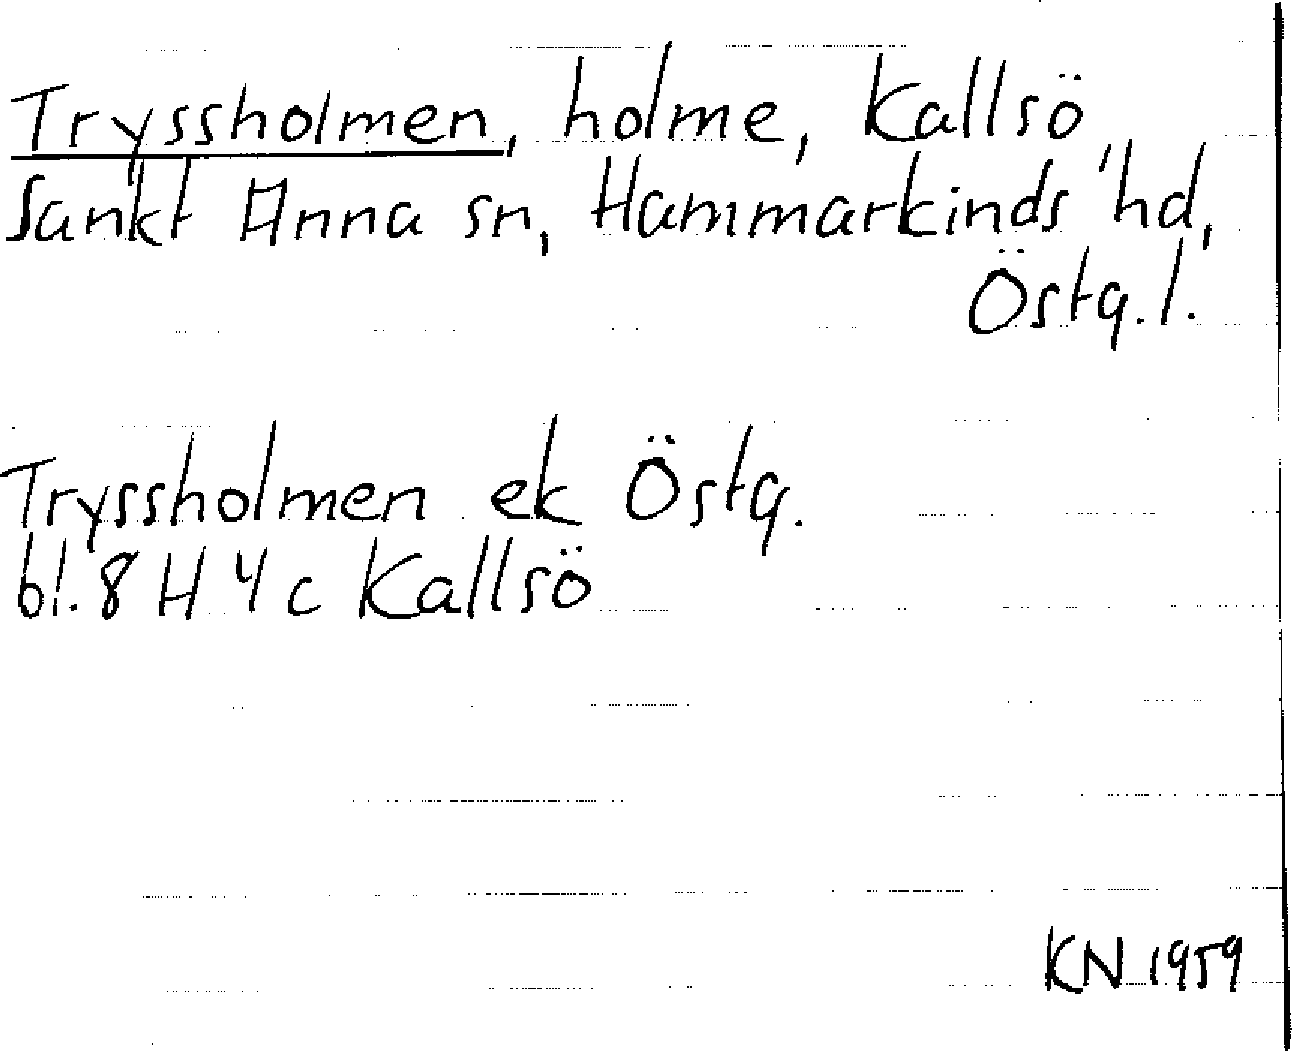 Tryssholmen, holme, Kallsö,
Sankt Anna sn, Hammarkinds hd,
Östg. l.
Tryssholmen ek Östg.
bl. 8 H 4 c Kallsö
KN 1959